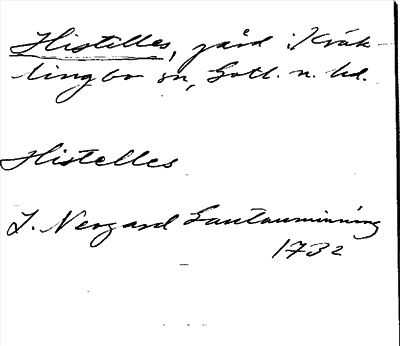 Histelles, gård i Kräk-
lingbo sn, Gotl. n. hd.
Histelles
J. Nergard Lantauminining
1732